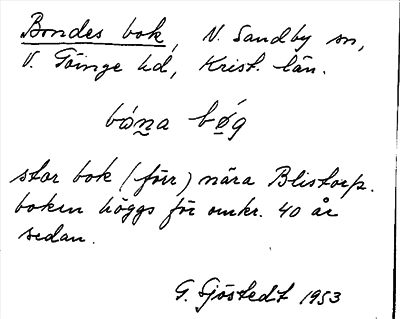 Bondes bok, V. Sandby sn,
V. Göinge hd, Krist. län.
bónа bǿg
stor bok (förr) nära Blistorp.
boken höggs för omkr. 40 år
sedan.
G. Sjöstedt 1953